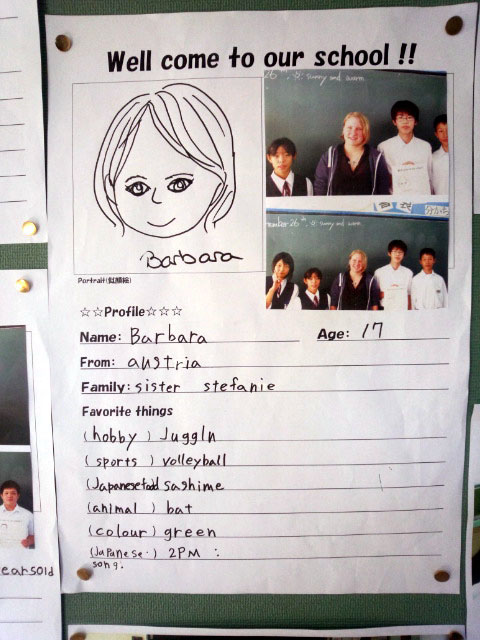 Well come to our school !!
26th ☼: sunny and warm
mber 26th ☼: sunny and warm
Barbara
Portrait(似顔絵)
☆☆Profile☆☆☆
Name: Barbara Age: 17
From: austria
Family: sister stefanie
Favorite things
(hobby) Juggln
(sports) volleyball
(Japanesefood) sashime
(animal) bat
(colour) green
(Japanese song.) 2PM :
ears old